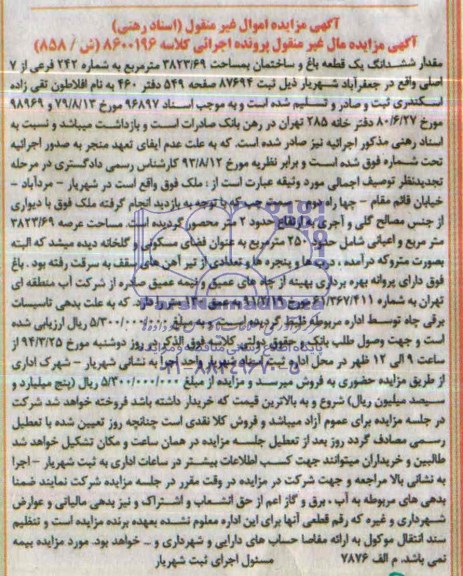 آگهی مزایده اموال غیر منقول (اسناد رهنی)
آگهی مزایده مال غیر منقول پرونده اجرائی کلاسه ۸۶۰۰۱۹۶ (ش / ۸۵۸)
مقدار ششدانگ یک قطعه باغ و ساختمان بمساحت ۳۸۲۳/۶۹ مترمربع به شماره ۲۴۲ فرعی از ۷
اصلی واقع در جعفرآباد شهریار ذیل ثبت ۸۷۶۹۴ صفحه ۵۴۹ دفتر ۴۶۰ به نام افلاطون تقی زاده
اسکندری ثبت و صادر و تسلیم شده است و به موجب اسناد ۹۶۸۹۷ مورخ ۷۹/۸/۱۳ و ۹۸۹۶۹
مورخ ۸۰/۶/۲۷ دفتر خانه ۲۸۵ تهران در رهن بانک صادرات است و بازداشت میباشد و نسبت به
اسناد رهنی مذکور اجرائیه نیز صادر شده است. که به علت عدم ایفای تعهد منجر به صدور اجرائیه
تحت شماره فوق شده است و برابر نظریه مورخ ۹۳/۸/۱۲ کارشناس رسمی دادگستری در مرحله
تجدیدنظر توصیف اجمالی مورد وثیقه عبارت است از : ملک فوق واقع است در شهریار – مردآباد –
خیابان قائم مقام – چهار راه دوم – سمت چپ که با توجه به بازدید انجام گرفته ملک فوق با دیواری
از جنس مصالح گلی و آجری به ارتفاع حدود ۲ متر محصور گردیده است. مساحت عرصه ۳۸۲۳/۶۹
متر مربع و اعیانی شامل حدود ۲۵۰ مترمربع به عنوان فضای مسکونی و گلخانه دیده میشد که البته
بصورت متروکه درآمده ، درب ها و پنجره ها و تعدادی از تیر آهن های سقف به سرقت رفته بود . باغ
فوق دارای پروانه بهره برداری بهینه از چاه های عمیق و نیمه عمیق صادره از شرکت آب منطقه ای
تهران به شماره ۶۱/۳۶۷/۴۱۱ مورخ به عمق متر را دارد. که به علت بدهی تاسیسات
برقی چاه توسط اداره مربوطه قطع گردیده است. و به مبلغ ۵/۳۰۰/۰۰۰/۰۰۰ ریال ارزیابی شده
است و جهت وصول طلب بانک و حقوق دولتی کلاسه فوق الذکر در روز دوشنبه مورخ ۹۴/۳/۲۵ از
ساعت ۹ الی ۱۲ ظهر در محل اداره ثبت اسناد شهریار واحد اجرا به نشانی شهریار – شهرک اداری
از طریق مزایده حضوری به فروش میرسد و مزایده از مبلغ ۵/۳۰۰/۰۰۰/۰۰۰ ریال (پنج میلیارد و
سیصد میلیون ریال) شروع و به بالاترین قیمت که خریدار داشته باشد فروخته خواهد شد شرکت
در جلسه مزایده برای عموم آزاد میباشد و فروش کلا نقدی است چنانچه روز تعیین شده با تعطیل
رسمی مصادف گردد روز بعد از تعطیل جلسه مزایده در همان ساعت و مکان تشکیل خواهد شد
طالبین و خریداران میتوانند جهت کسب اطلاعات بیشتر در ساعات اداری به ثبت شهریار – اجرا
به نشانی بالا مراجعه و جهت شرکت در مزایده در وقت مقرر در جلسه مزایده شرکت نمایند ضمنا
بدهی های مربوطه به آب ، برق و گاز اعم از حق انشعاب و اشتراک و نیز بدهی مالیاتی و عوارض
شهرداری و غیره که رقم قطعی آنها برای این اداره معلوم نشده بعهده برنده مزایده است و تنظیم
سند انتقال موکول به ارائه مفاصا حساب های دارایی و شهرداری و ... خواهد بود. مورد مزایده بیمه
نمی باشد. م الف ۷۸۷۶ مسئول اجرای ثبت شهریار